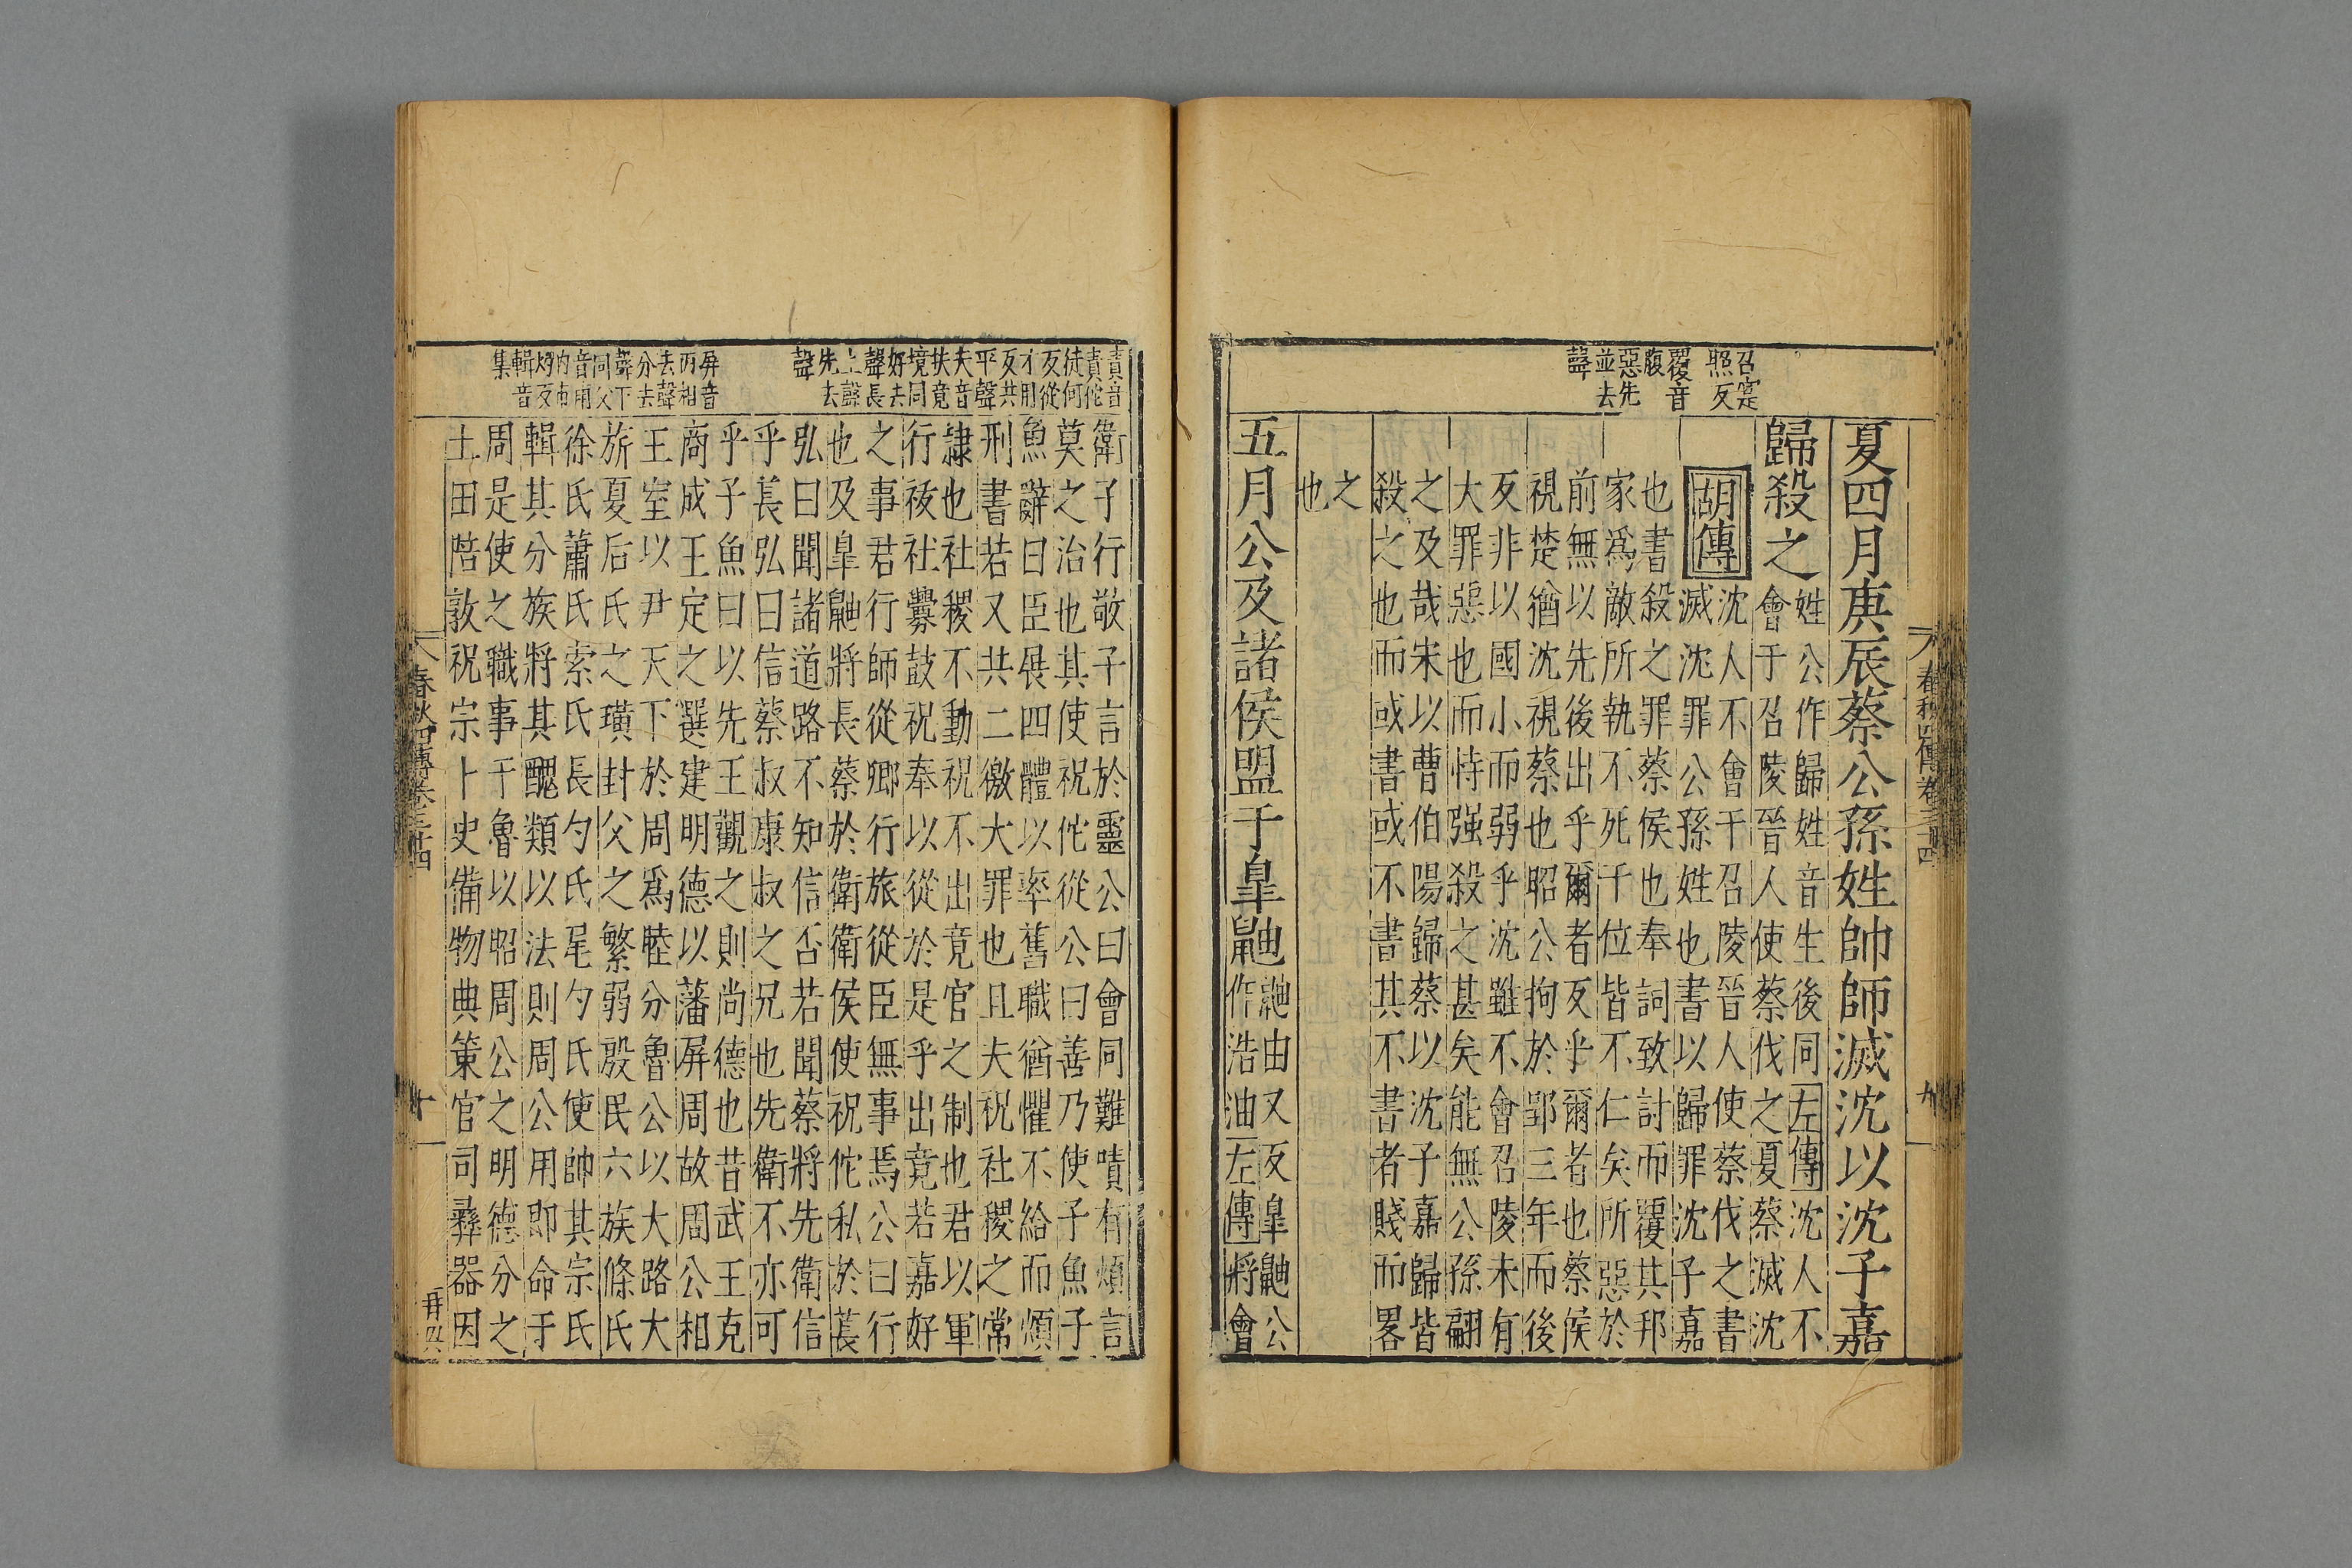 春秋四傳卷三十四
九
召寔
照反
覆音
腹
惡先
並去
聲
夏四月庚辰蔡公孫姓帥師滅沈以沈子嘉
歸殺之
姓公作歸姓音生後同左傳沈人不
會于召陵晉人使蔡伐之夏蔡滅沈
胡傳
沈人不會于召陵晉人使蔡伐之書
滅沈罪公孫姓也書以歸罪沈子嘉
也書殺之罪蔡侯也奉詞致討而覆其邦
家爲敵所執不死于位皆不仁矣所惡於
前無以先後出乎爾者反乎爾者也蔡侯
視楚猶沈視蔡也昭公拘於郢三年而後
反非以國小而弱乎沈雖不會召陵未有
大罪惡也而恃强殺之甚矣能無公孫翩
之及哉宋以曹伯陽歸蔡以沈子嘉歸皆
殺之也而或書或不書其不書者賤而畧
之
也
五月公及諸侯盟于皐鼬
鼬由又反皐鼬公
作浩油左傳將會
嘖音
責佗
徒何
反從
才用
反共
平聲
夫音
扶竟
境同
好去
聲長
上聲
先去
聲
屏音
丙相
去聲
分去
聲下
同父
音甫
勺市
灼反
輯音
集
衛子行敬子言於靈公曰會同難嘖有煩言
莫之治也其使祝佗從公曰善乃使子魚子
魚辭曰臣展四體以率舊職猶懼不給而煩
刑書若又共二徼大罪也且夫祝社稷之常
隸也社稷不動祝不出竟官之制也君以軍
行祓社釁鼓祝奉以從於是乎出竟若嘉好
之事君行師從卿行旅從臣無事焉公曰行
也及皐鼬將長蔡於衛衛侯使祝佗私於萇
弘曰聞諸道路不知信否若聞蔡將先衛信
乎萇弘曰信蔡叔康叔之兄也先衛不亦可
乎子魚曰以先王觀之則尚德也昔武王克
商成王定之選建明德以藩屏周故周公相
王室以尹天下於周爲睦分魯公以大路大
旂夏后氏之璜封父之繁弱殷民六族條氏
徐氏蕭氏索氏長勺氏尾勺氏使帥其宗氏
輯其分族將其醜類以法則周公用即命于
周是使之職事于魯以昭周公之明德分之
土田陪敦祝宗卜史備物典策官司彝器因
春秋四傳卷三十四
十